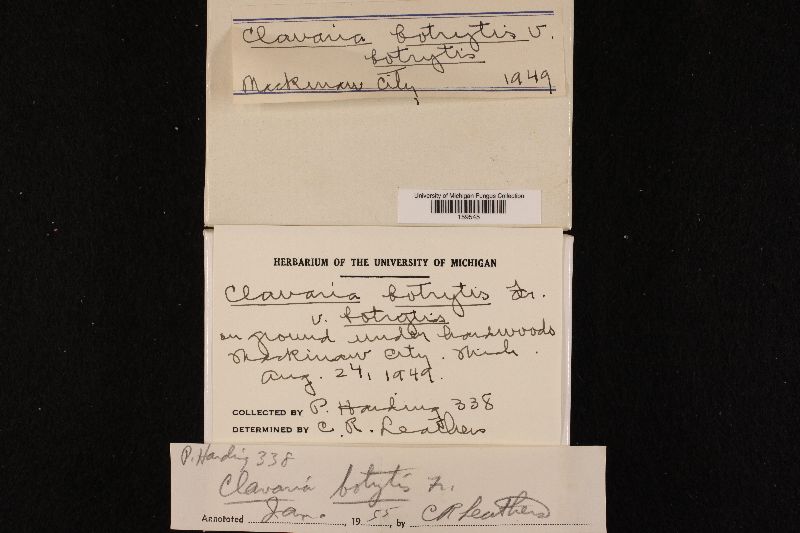 Clavaria botrytis v.
botrytis
Mackinaw City 1949
University of Michigan Fungus Collection
HERBARIUM OF THE UNIVERSITY OF MICHIGAN
Clavaria botrytis Fr.
v. botrytis
on ground under hardwoods
Mackinaw City. Mich.
Aug. 24, 1949.
COLLECTED BY P. Harding 338
DETERMINED BY C. R. Leathers
P. Harding 338
Clavaria botytis Fr.
Annotated Jan. , 19 55 , by CR Leathers